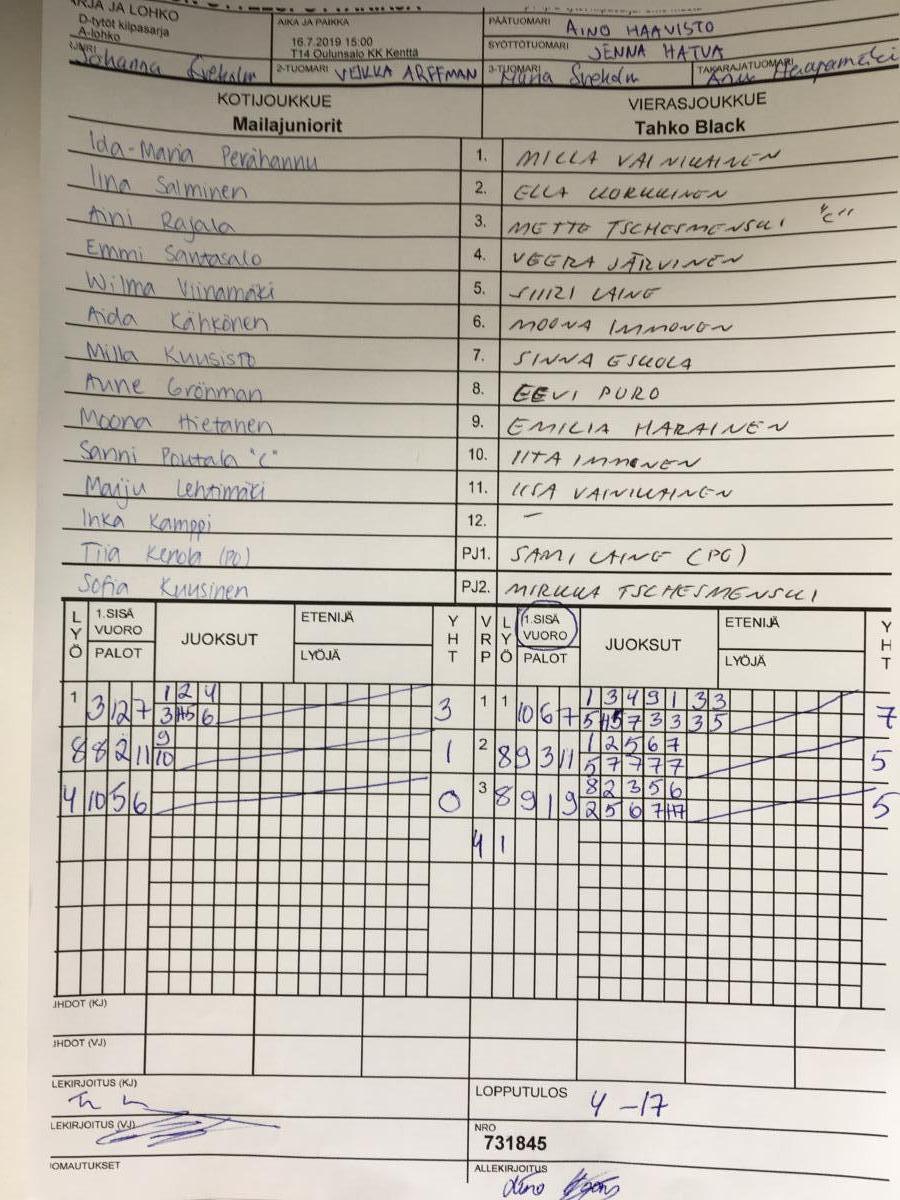 RJA JA LOHKO
D-tytöt kilpasarja
A-lohko
AIKA JA PAIKKA
16.7.2019 15:00
T14 Oulunsalo KK Kenttä
PÄÄTUOMARI AINO HAAVISTO
SYÖTTÖTUOMARI JENNA HATVA
Johanna Sveholm
2-TUOMARI VEIKKA ARFFMAN
3-TUOMARI Maria Sveholm
TAKARAJATUOMARI Anu Haapamäki
KOTIJOUKKUE VIERASJOUKKUE
Mailajuniorit Tahko Black
Ida-Maria Perähannu 1. MILLA VAINIKAINEN
Iina Salminen 2. ELLA KORKKINEN
Aini Rajala 3. METTO TSCHESMENSKI "C"
Emmi Santasalo 4. VEERA JÄRVINEN
Wilma Viinamäki 5. SIIRI LAINE
Aida Kähkönen 6. MOONA IMMONEN
Milla Kuusisto 7. SINNA ESKOLA
Anne Grönman 8. EEVI PURO
Moona Hietanen 9. EMILIA HARAINEN
Sanni Poutala "C" 10. IITA IMMONEN
Maiju Lehtimäki 11. IISA VAINIKAINEN
Inka Kamppi 12. –
Tiia Kenola (PO) PJ1. SAMI LAINE (PG)
Sofia Kuusinen PJ2. MIRKKA TSCHESMENSKI
LYÖ 1.SISÄ VUORO PALOT JUOKSUT ETENIJÄ LYÖJÄ YHT VRP LYÖ 1.SISÄ VUORO PALOT JUOKSUT ETENIJÄ LYÖJÄ YHT
1 2 4 1 3 4 9 1 3 3
1 3 12 7 3 H5 6 3 1 1 10 6 7 5 H5 7 3 3 3 5 7
9 1 2 5 6 7
8 8 2 11 10 1 2 8 9 3 11 5 7 7 7 7 5
8 2 3 5 6
4 10 5 6 0 3 8 9 1 9 2 5 6 7 H7 5
4 1
JHDOT (KJ)
JHDOT (VJ)
LEKIRJOITUS (KJ)
LOPPUTULOS 4 – 17
LEKIRJOITUS (VJ)
NRO
731845
IOMAUTUKSET
ALLEKIRJOITUS
Aino